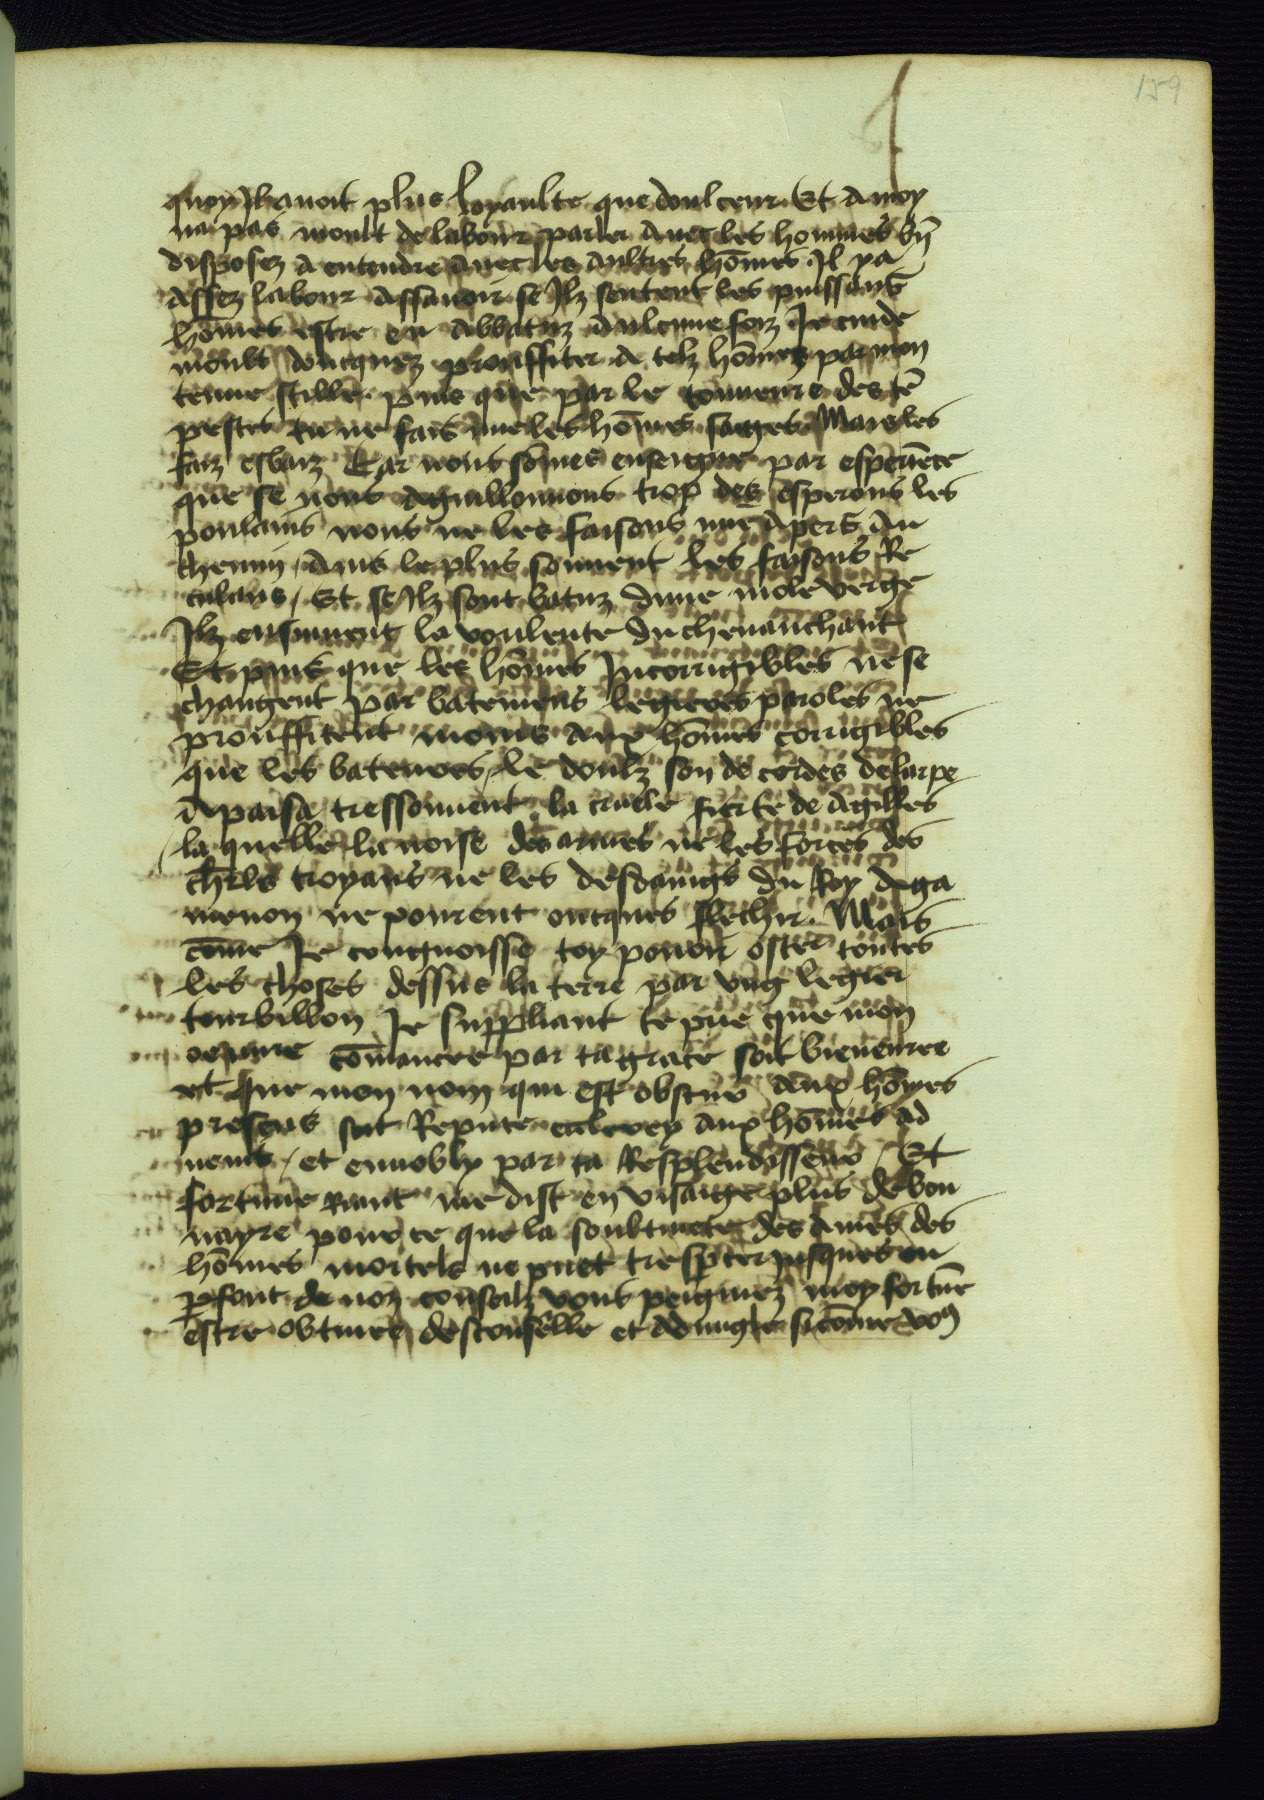 159
quoy Il auoit plus loyaulte que doulceur. Et a moy
na pas moult de labour parler auec les hommes bn̄
disposez a entendre auec les aultres hōmes Il y a
assez labour assauoir se Ilz sentent les puissans
hōmes estre en abbatuz aulcune foiz Je cuide
moult doncques prouffiter a telz hōmes par mon
tenue stille. puis que par le tonneure des tē
pestes tu ne fais mie les hōmes sages Mais les
faiz esbaiz Car nous sōmes enseignie par experiēce
que se nous aguillonnons trop des esperons les
poulains nous ne les faisons mie apers au
chemin, ains le plus souuent les faisons Re
culans, Et se Ilz sont batuz dune mole verge
Ilz ensuiuent la voulente du cheuaūchant
Et puis que les hōmes Incorrigibles ne se
changent par batemens legieres paroles ne
prouffitent moins aux hōmes corrigibles
que les bateures, le doulz son de cordes de larpe
apaisa tressouuent la cruelle fierte de Agilles
laquelle la noise des armes ne les forces des
chl̄rs troyans ne les desdaings du Roy Aga
menon ne pourent oncques flechir. Mais
cōme Je congnoisse toy pouoir oster toutes
les choses dessus la terre par vng legier
tourbillon Je suppliant te prie que mon
oeuure cōmancee par ta grace soit bieneuree
et que mon nom qui est obscur aux hōmes
presens soit Repute esleuey aux hōmes ad
uenir, et ennobly par ta Resplendisseur, Et
fortune Riant me dist en visaige plus debon
nayre pour ce que la soubtiuete des ames des
hōmes mortels ne puet tresꝑcer jusques en
ꝑfont de noz conseilz vous peignez moy fortūe
estre obturee descouselle et aueugle si cōme vo9